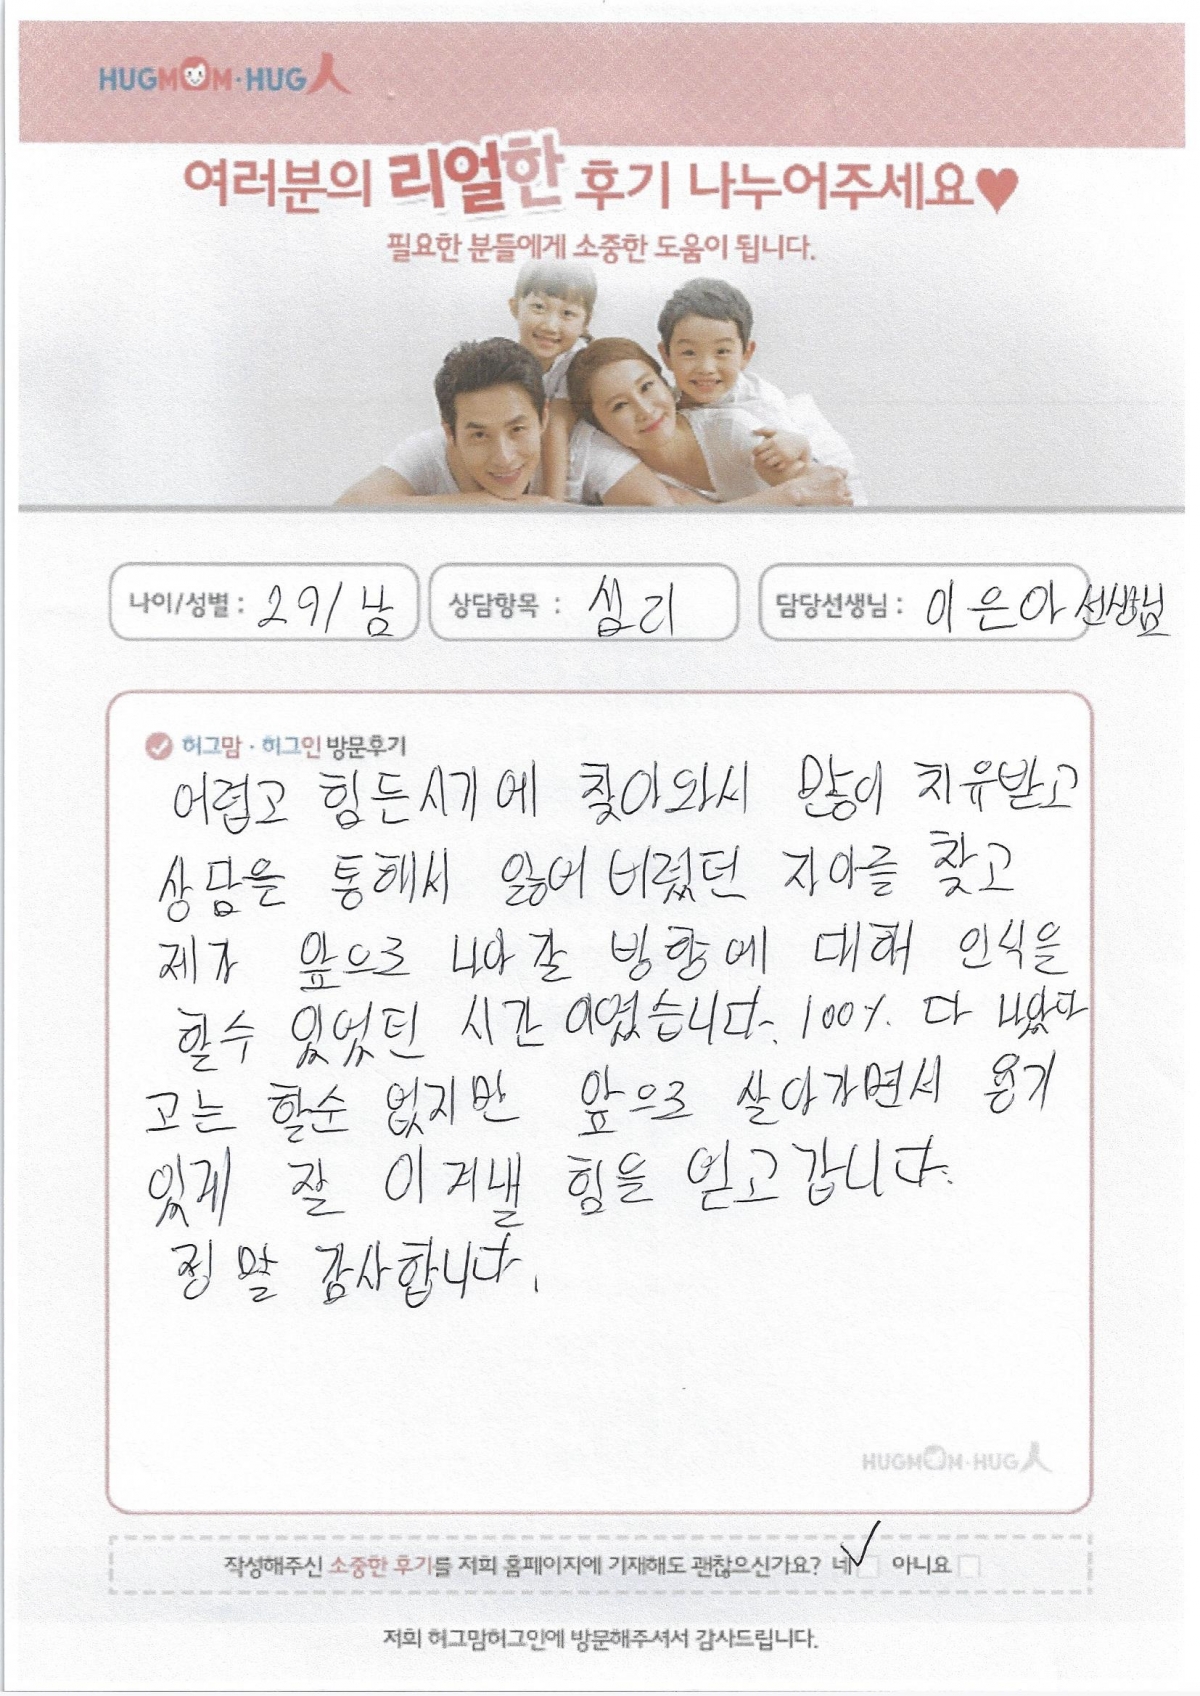 HUGMOM·HUG人
여러분의 리얼한 후기 나누어주세요♥
필요한 분들에게 소중한 도움이 됩니다.
나이/성별 : 29/남 상담항목 : 심리 담당선생님 : 이은아 선생님
허그맘·허그인 방문후기
어렵고 힘든시기에 찾아와서 많이 치유받고
상담을 통해서 잃어버렸던 자아를 찾고
제가 앞으로 나아갈 방향에 대해 인식을
할수 있었던 시간 이였습니다. 100% 다 나았다
고는 할순 없지만 앞으로 살아가면서 용기
있게 잘 이겨낼 힘을 얻고갑니다.
정말 감사합니다.
HUGMOM·HUG人
작성해주신 소중한 후기를 저희 홈페이지에 기재해도 괜찮으신가요? 네 ✓ 아니요
저희 허그맘허그인에 방문해주셔서 감사드립니다.